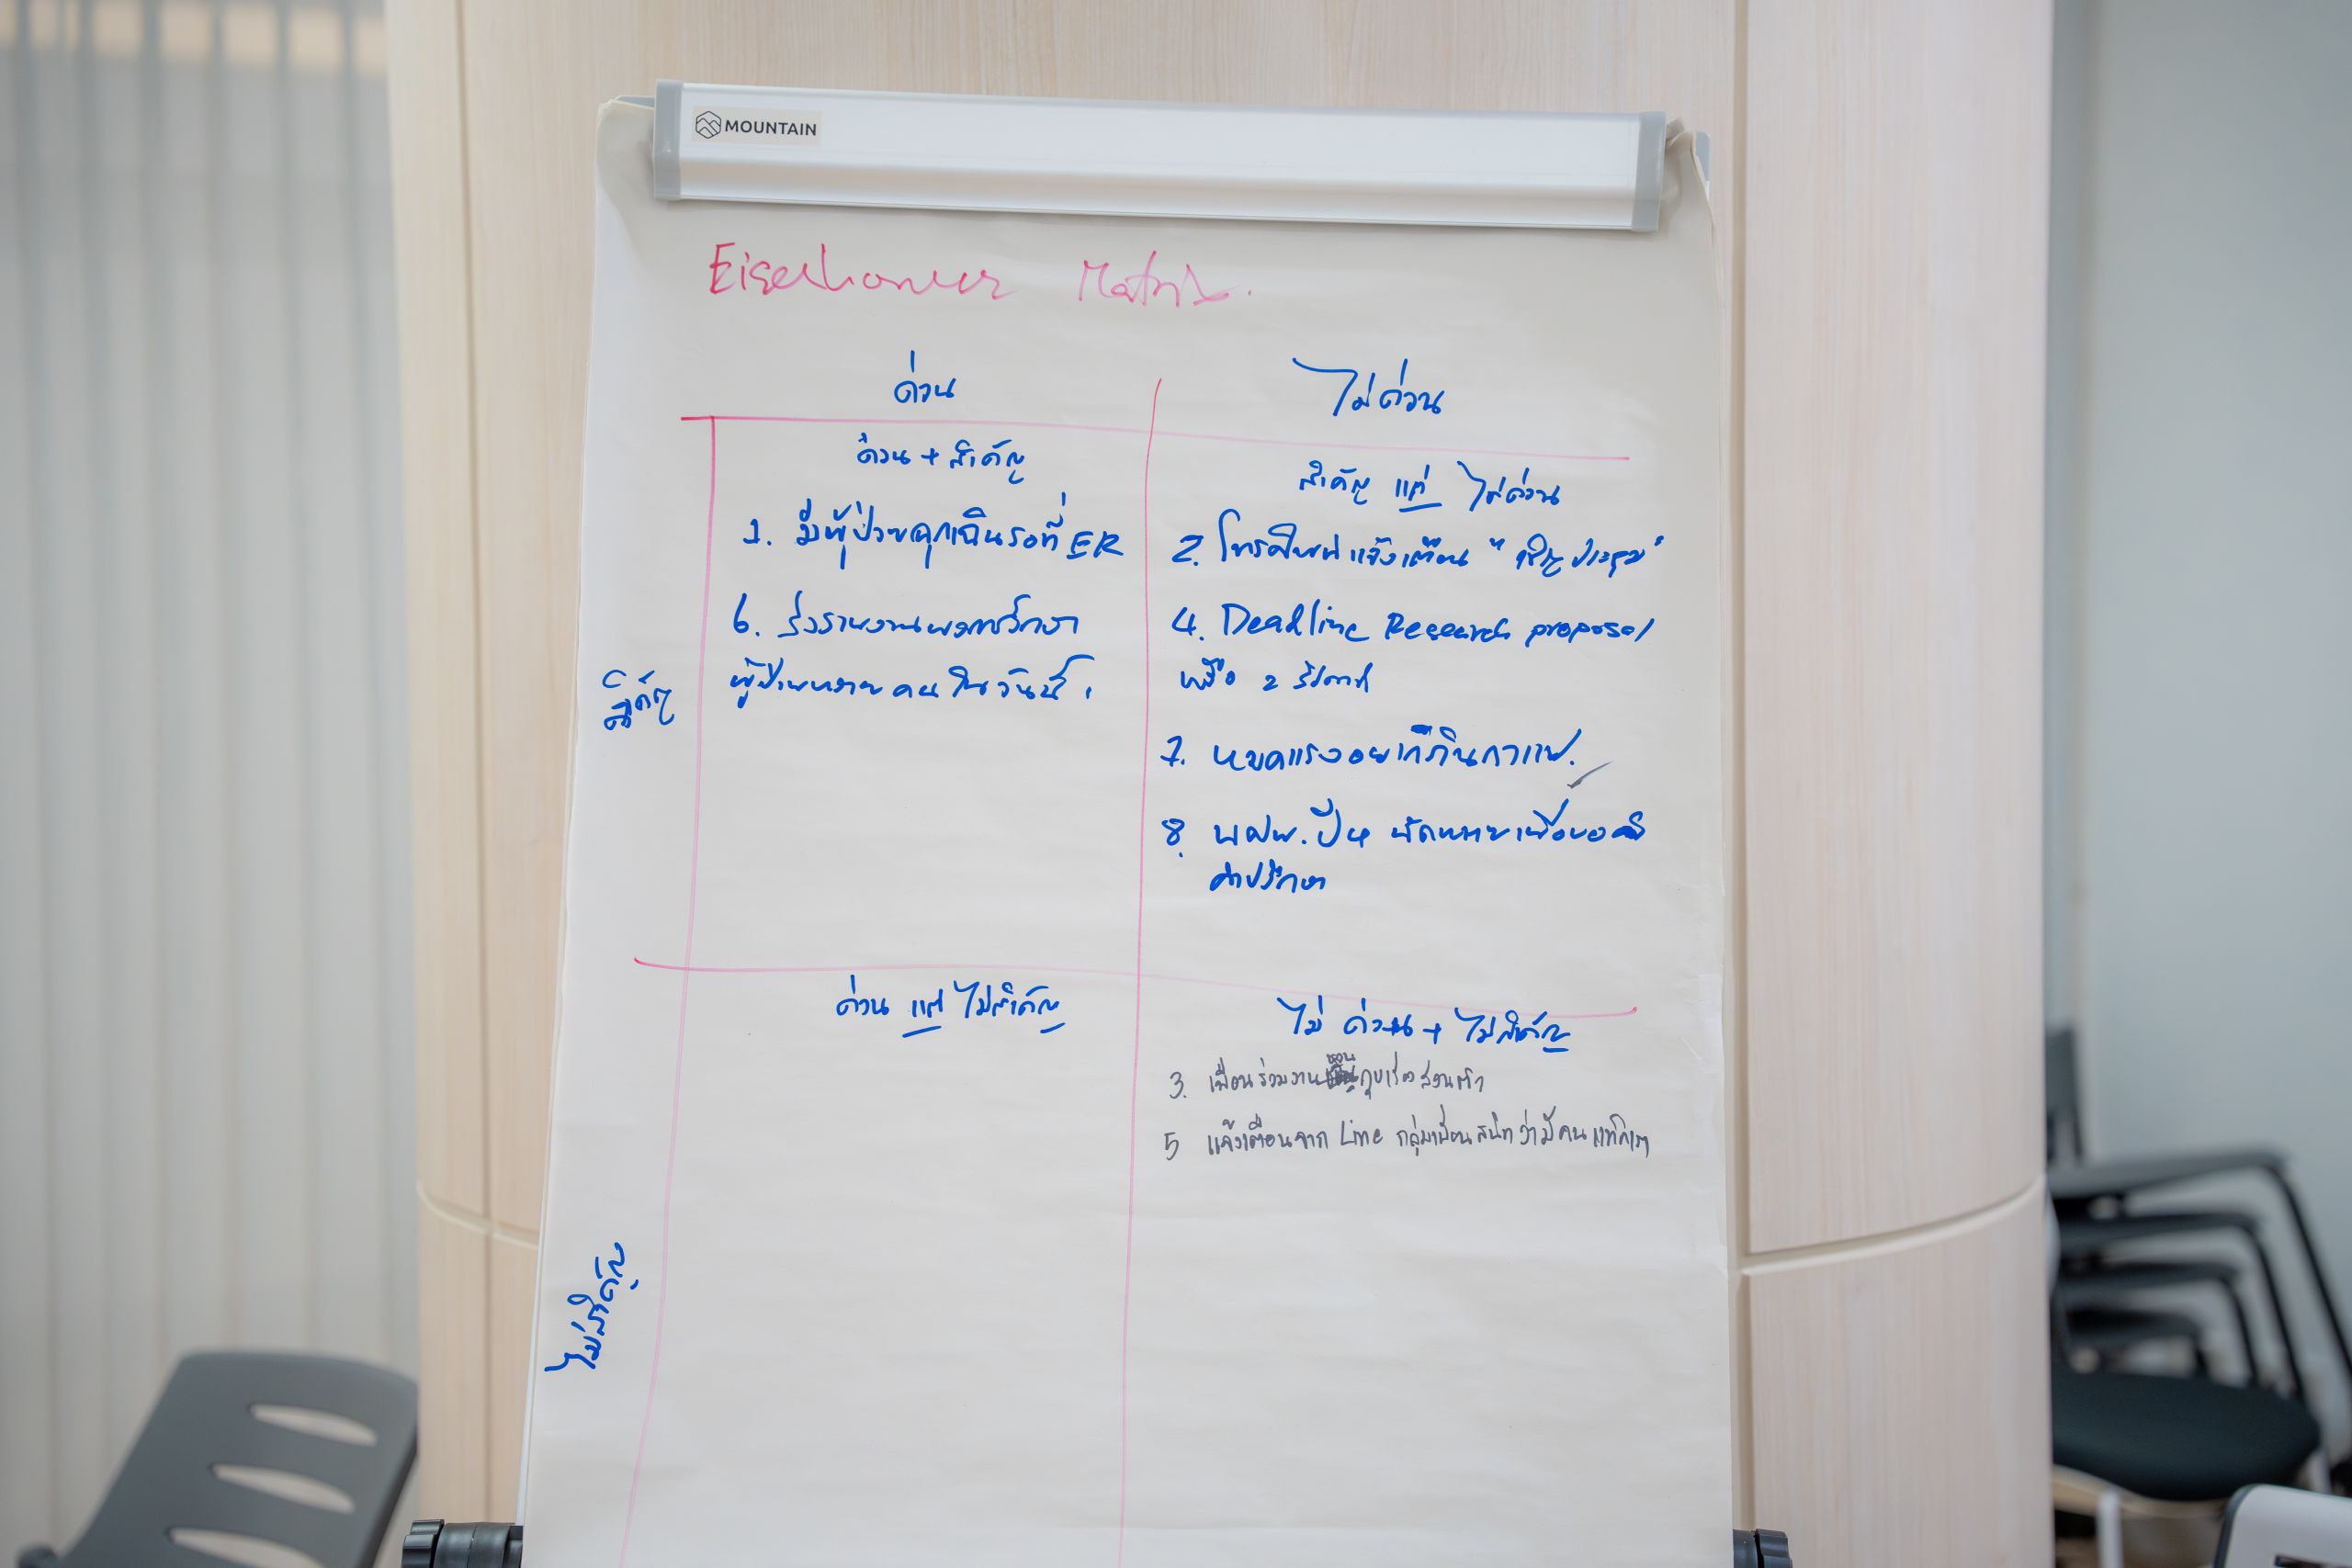 MOUNTAIN
Eisenhower Matrix.
ด่วน
ไม่ด่วน
ด่วน + สำคัญ
สำคัญ แต่ ไม่ด่วน
1. มีผู้ป่วยฉุกเฉินรอที่ ER
2. โทรศัพท์แจ้งเตือน " เชิญประชุม"
6. ส่งรายงานผลการรักษา
ผู้ป่วยหลายคนในวันนี้
4. Deadline Research proposal
เหลือ 2 สัปดาห์
สำคัญ
7. หมดแรงอยากกินกาแฟ.
8. นศพ. ปี 4 นัดหมายเพื่อขอ
คำปรึกษา
ด่วน แต่ ไม่สำคัญ
ไม่ ด่วน + ไม่สำคัญ
3. เพื่อนร่วมงานชวนคุยเรื่องส่วนตัว
5 แจ้งเตือนจาก Line กลุ่มเพื่อนสนิทว่ามีคนแท็กเรา
ไม่สำคัญ